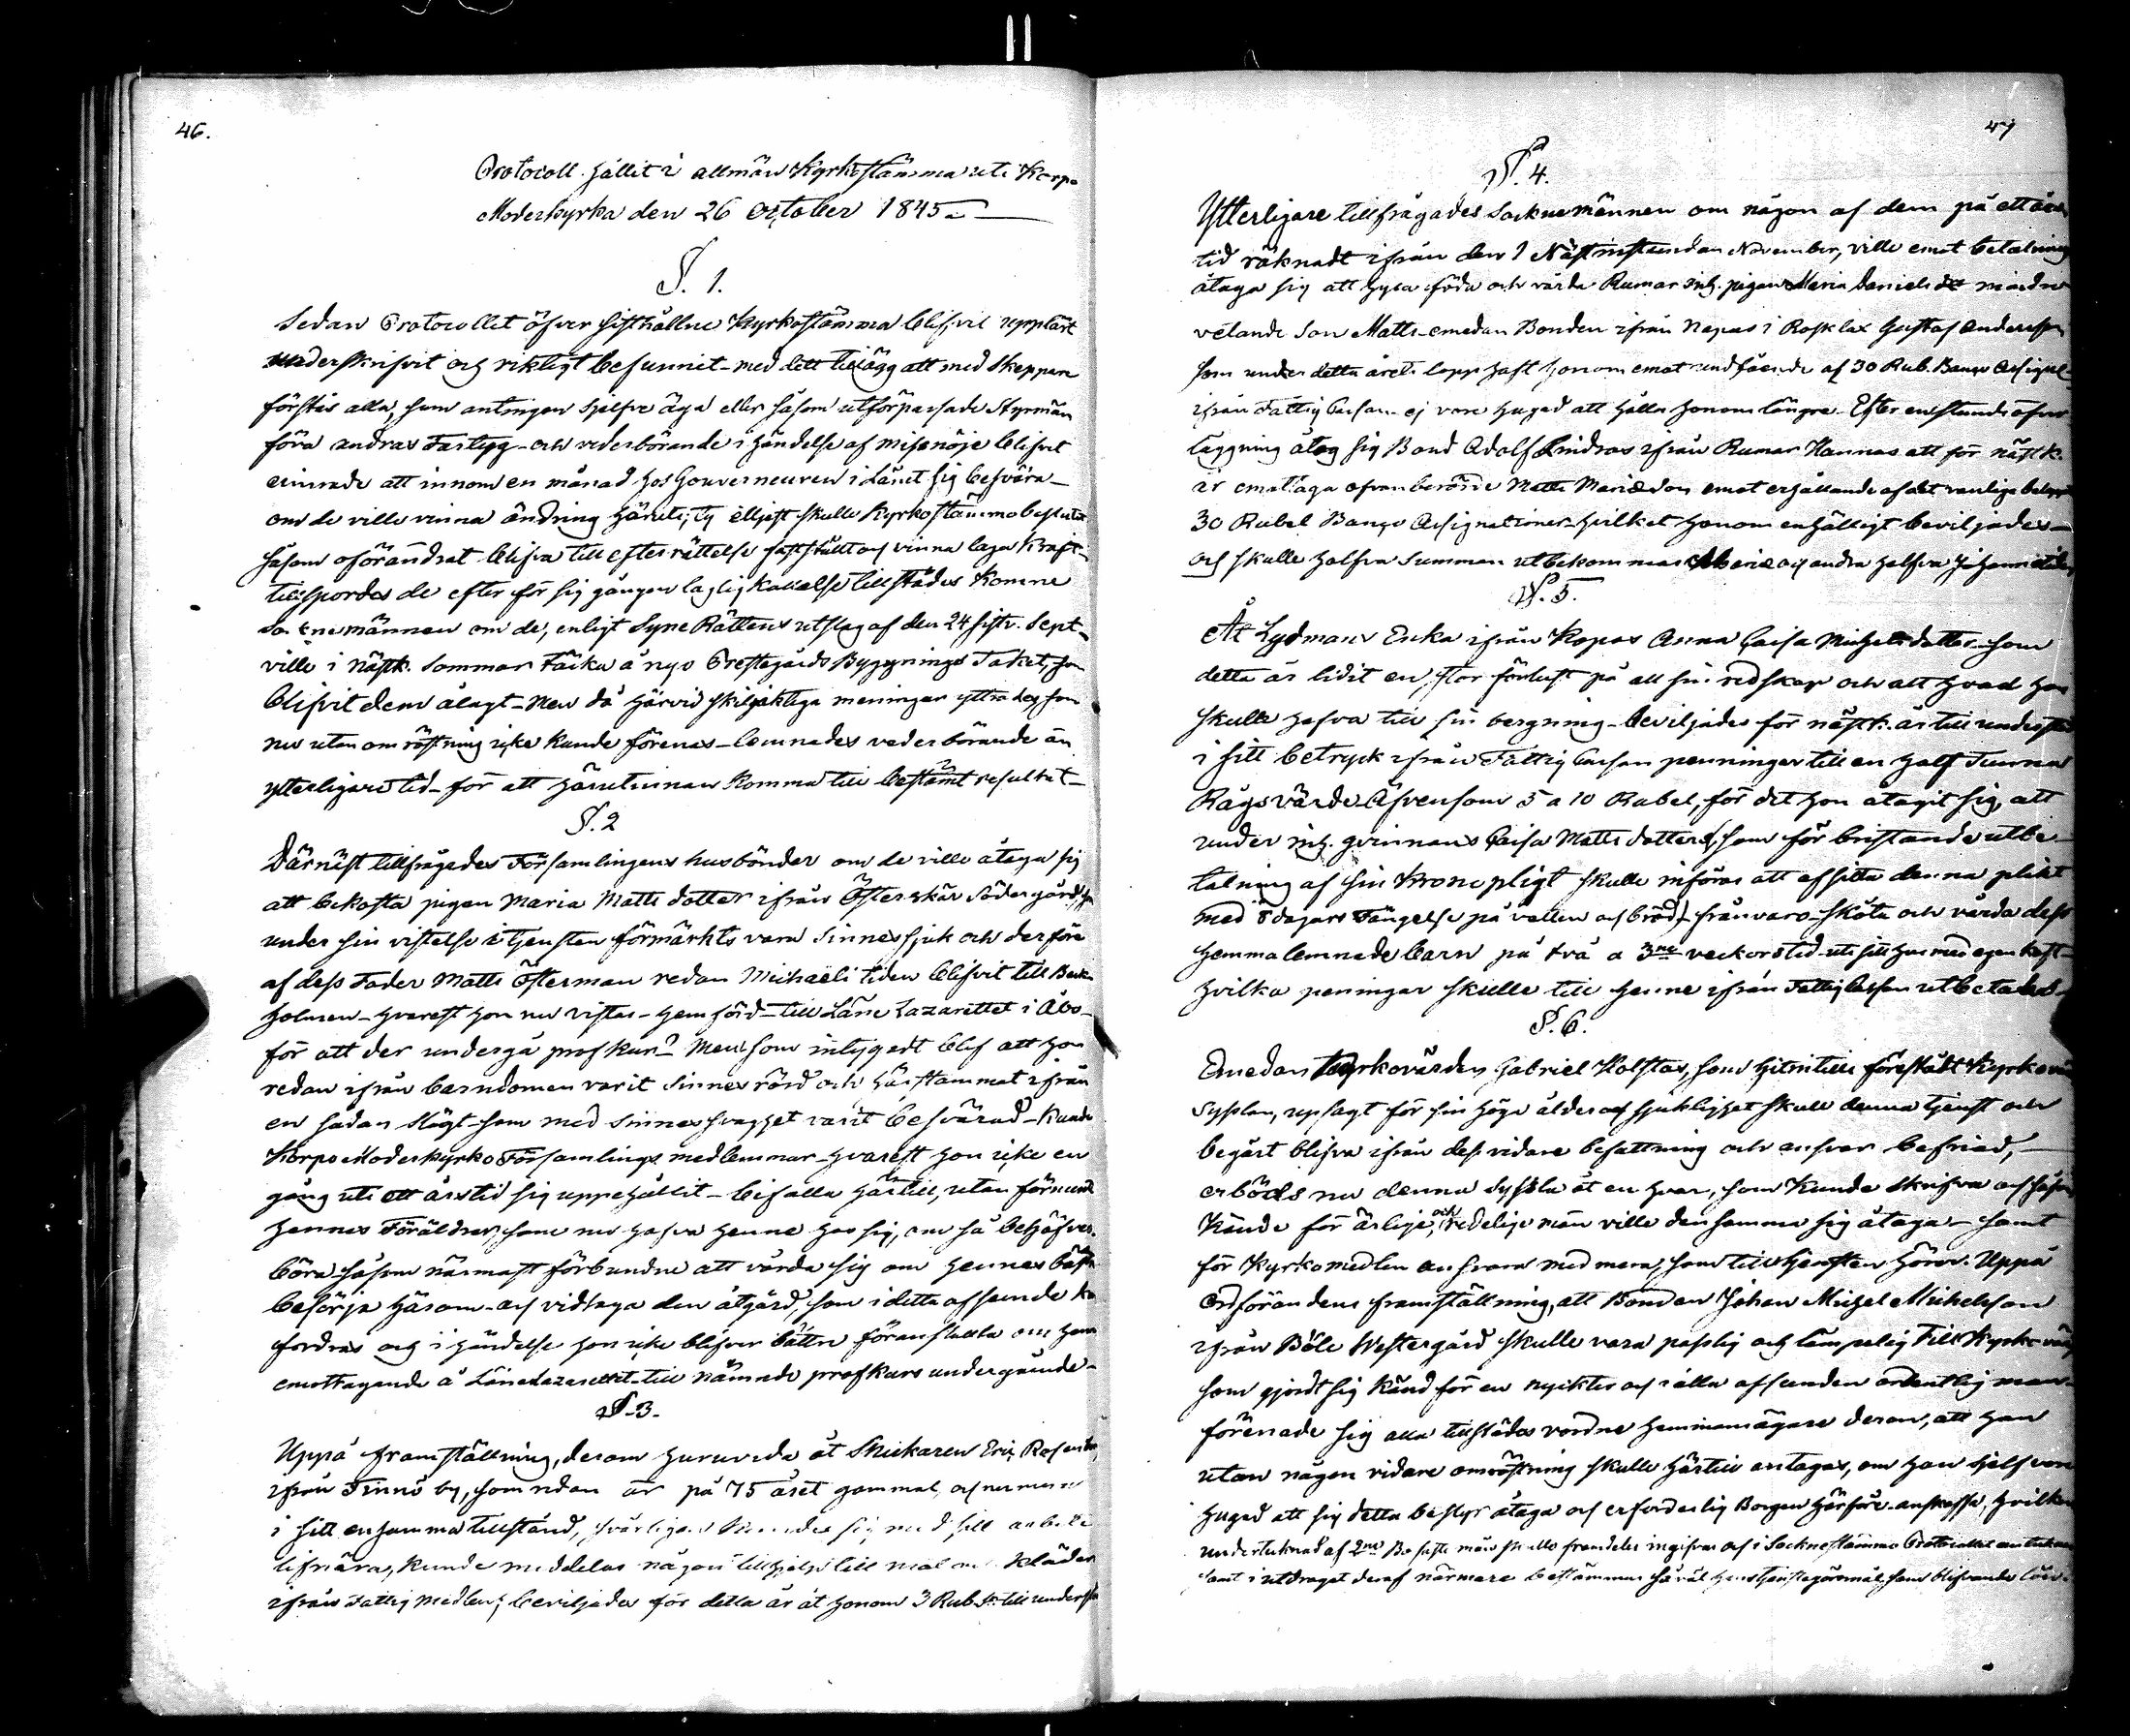 46.
Protocoll hållit i allmän Kyrkostämma uti Korpo
Moderkyrka den 26 October 1845
§. 1.
Sedan Protocollet öfver sisthållne Kyrkostämma blifvit uppläst
underskrifvit och riktigt befunnit med dett tillägg att med Skeppare
förstås alla, som antingen sjelfve äga eller såsom utförpassade Styrmän
föra andras Fartyg och vederbörande i händelse af missnöje blifvit
erinrade att innom en månad hos Gouverneuren i Länet sig besvära
om de ville vinna ändring häruti, ty elljest skulle Kyrkostämmobeslutet
såsom oförändrat blifva till efterrättelse fastställt och vinna laga Kraft
tillspordes de efter för sig gången laglig kallelse tillstädes Komne
Socknemännen om de, enligt Syne Rättens utslag af den 24 sistv. Sept.
ville i nästk. Sommar Täcka å nyo Prestegårds Byggnings Taket, som
blifvit dem ålagt Men då härvid skiljaktiga meningar yttrades som
nu utan omröstning icke kunde förenas lemnades vederbörande än
ytterligare tid för att härutinnan Komma till bestämt resultat
§. 2
Därnäst tillfrågades Församlingens husbönder om de ville åtaga sig
att bekosta pigan Maria Matts dotter ifrån Österskär Södergård, som
under sin vistelse i tjensten förmärkts vara Sinnessjuk och derföre
af dess Fader Matts Österman redan Michaeli tiden blifvit till
holmen hvarest hon nu vistas hemförd till Läne Lazarettet i Åbo
för att der undergå profkur? Men som intygadt blef att hon
redan ifrån barndomen varit Sinnesrörd och härstammat ifrån
en sådan Slägt som med Sinnessvaghet varit besvärad Kunde
Korpo Moderkyrko Församlings medlemmar hvarest hon icke en
gång uti ett års tid sig uppehållit bifalla härtill, utan förmente
hennes Föräldrar, som nu hafva henne hos sig, om så behöfves
böra såsom närmast förbundne att vårda sig om hennes bästa
besörja härom och vidtaga den åtgärd, som i detta afseende kan
fordras och i händelse hon icke blifver bättre föranstalta om hennes
emottagande å Länelazarettet till nämnde profkurs undergående
§. 3.
Uppå framställning, derom huruvida åt Snickaren Eric
ifrån Finnö by, som redan är på 75 året gammal, och numera
i sitt ensamma tillstånd, svårligen kunde sig med sitt arbete
lifnära, kunde meddelas någon tillhjelp till mat och Kläder
ifrån Fattig medlen; beviljades för detta år åt honom 3 Rub. Sr till
47
§. 4.
Ytterligare tillfrågades Socknemännen om någon af dem på ett års
tid räknadt ifrån den 1 Nästinstundan November, ville emot betalning
åtaga sig att hysa föda och vårda Rumar inh. pigan Maria Daniels d:r mindre
vetande Son Matts emedan Bonden ifrån Nepas i Rosklax Gustaf Andersson
som under detta årets lopp haft honom emot undfående af 30 Rub. Banco Assignat
ifrån Fattig Cassan ej vore hugad att hålla honom längre. Efter en stunds öfver
läggning åtog sig Bond Adolf Lindroos ifrån Rumar Hannas att för nästk.
år emottaga ofvanberörde Matts Marieson emot erhållande af det vanliga beloppet
30 Rubel Banco Assignationer hvilket honom enhälligt beviljades
och skulle halfva Summan utbekommas Marie och andra halfva Johanni tiden
§. 5.
Åt Lydmans Enka ifrån Kopas Anna Caisa Michelsdotter som
detta år lidit en stor förlust på all sin redskap och allt hvad hon
skulle hafva till sin bergning beviljades för nästk. år till understöd
i sitt betryck ifrån Fattig Cassan penningar till en half Tunna
Rågs värde Äfvensom 5 a 10 Rubel, för det hon åtagit sig, att
under inh. qvinnans Caisa Matts dotters, (som för bristande utbe
talning af sin Kronopligt skulle införas att afsitta denna plikt
med 8 dagars Fängelse på vatten och bröd) frånvaro sköta och vårda dess
hemma lemnade barn på två a 3ne veckors tid uti sitt hus med egen kost
hvilka peningar skulle till henne ifrån Fattig Cassan utbetalas.
§. 6.
Emedan Kyrkovärden Gabriel Holstar, som hitintill förestådt Kyrkovärds
Sysslan, uppsagt för sin höga ålder och sjuklighet skull denna tjenst och
begärt blifva ifrån dess vidare befattning och ansvar befriad,
erböds nu denna Syssla åt en hvar, som Kunde skrifva och såsom
Kände för ärlige, och redelige män ville densamma sig åtaga samt
för Kyrkomedlen ansvara med mera, som till tjensten hörer. Uppå
Ordförandens framställning, att Bonden Johan Michel Michelsson
ifrån Böle Westergård skulle vara passlig och lämpelig till Kyrkovärd
som gjordt sig känd för en nyckter och i alla afseenden ordentlig man
förenade sig alla tillstädes vordne hemmansägare derom, att han
utan någon vidare omröstning skulle härtill antagas, om han sjelf vore
hugad att sig detta bestyr åtaga och erforderlig Borgen härföre anskaffa, hvilken
undertecknad af 2ne Bosatte män skulle framdeles ingifvas och i Sockenstämmo Protocollet antecknas
samt i utdraget deraf närmare bestämmas såväl hans tjenstegöromål, som blifvande lön.